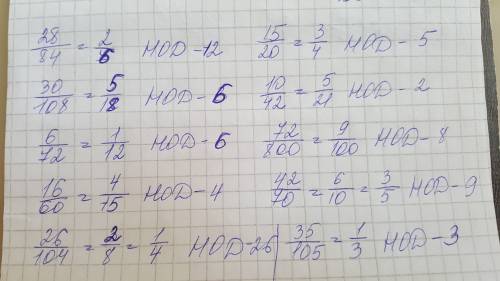 28/84 = 2/6 НОД-12 15/20 = 3/4 НОД - 5
30/108 = 5/18 НОД - 6 10/42 = 5/21 НОД - 2
6/72 = 1/12 НОД - 6 72/800 = 9/100 НОД - 8
16/60 = 4/15 НОД - 4 42/70 = 6/10 = 3/5 НОД - 9
26/104 = 2/8 = 1/4 НОД-26 35/105 = 1/3 НОД - 3